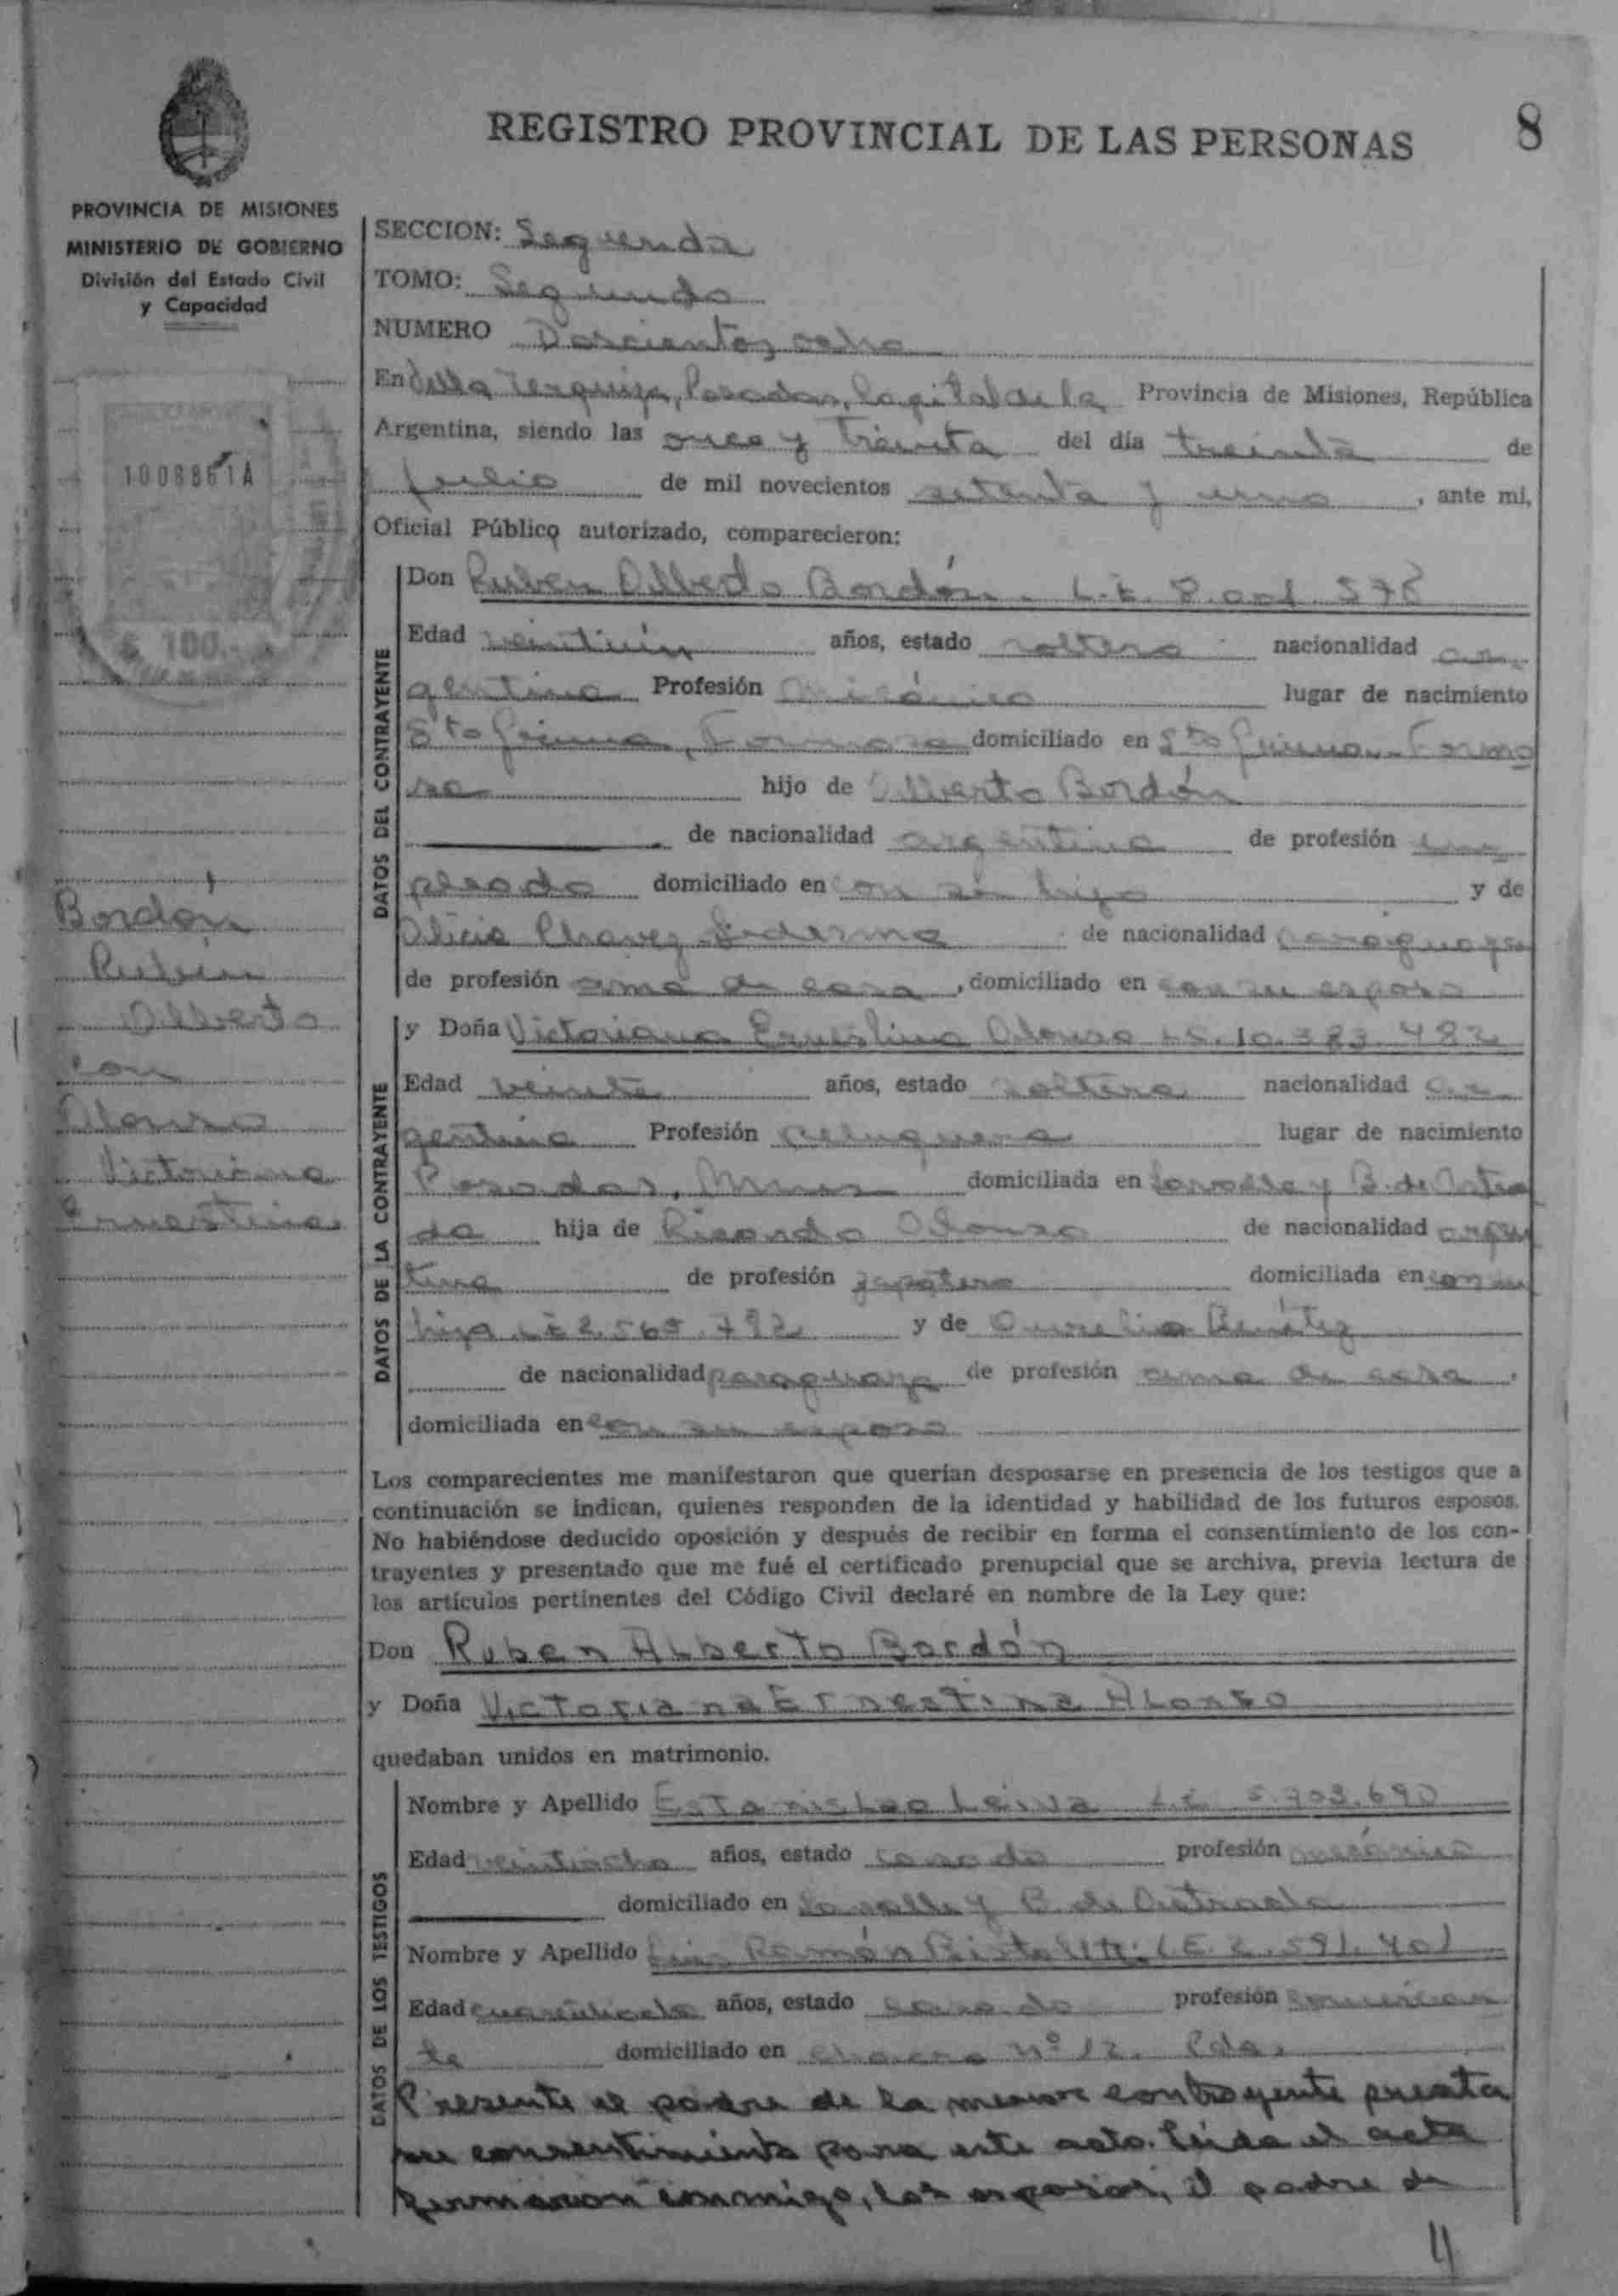 REGISTRO PROVINCIAL DE LAS PERSONAS
8
PROVINCIA DE MISIONES
MINISTERIO DE GOBIERNO
División del Estado Civil
y Capacidad
1008861A
$ 100.-
Bordón
Rubén
Alberto
con
Alonso
Victoriana
Ernestina
SECCION: Segunda
TOMO: Segundo
NUMERO Doscientos ocho
En Villa Urquiza, Posadas, Capital de la Provincia de Misiones, República
Argentina, siendo las once y treinta del día treinta de
julio de mil novecientos setenta y uno, ante mi,
Oficial Público autorizado, comparecieron:
DATOS DEL CONTRAYENTE
Don Ruben Alberto Bordón. L.E. 8.001.578
Edad veintiún años, estado soltero nacionalidad ar-
gentina Profesión mecánico lugar de nacimiento
Formosa domiciliado en Formo
sa hijo de Alberto Bordón
de nacionalidad argentina de profesión em
pleado domiciliado en con su hijo y de
Alicia Chavez de nacionalidad paraguaya
de profesión ama de casa, domiciliado en con su esposo
DATOS DE LA CONTRAYENTE
y Doña Victoriana Ernestina Alonso 10.383.482
Edad veinte años, estado soltera nacionalidad ar
gentina Profesión peluquera lugar de nacimiento
Posadas, Mnes domiciliada en Lavalle y B. de Astra
da hija de Ricardo Alonso de nacionalidad argen
tina de profesión zapatero domiciliada en con su
hija LE 2.565.792 y de Aurelia Benítez
de nacionalidad paraguaya de profesión ama de casa,
domiciliada en con su esposo
Los comparecientes me manifestaron que querían desposarse en presencia de los testigos que a
continuación se indican, quienes responden de la identidad y habilidad de los futuros esposos.
No habiéndose deducido oposición y después de recibir en forma el consentimiento de los con-
trayentes y presentado que me fué el certificado prenupcial que se archiva, previa lectura de
los artículos pertinentes del Código Civil declaré en nombre de la Ley que:
Don Ruben Alberto Bordón
y Doña Victoriana Ernestina Alonso
quedaban unidos en matrimonio.
DATOS DE LOS TESTIGOS
Nombre y Apellido Estanislao Leiva L.E 5.703.690
Edad veintiocho años, estado casado profesión mecánico
domiciliado en Lavalle y B. de Astrada
Nombre y Apellido Luis Ramón L.E. 2.591.401
Edad años, estado casado profesión comercian
te domiciliado en chacra Nº 12. Pdas.
Presente el padre de la menor contrayente presta
su consentimiento para este acto. Leída el acta
firmaron conmigo, los esposos, el padre de
4